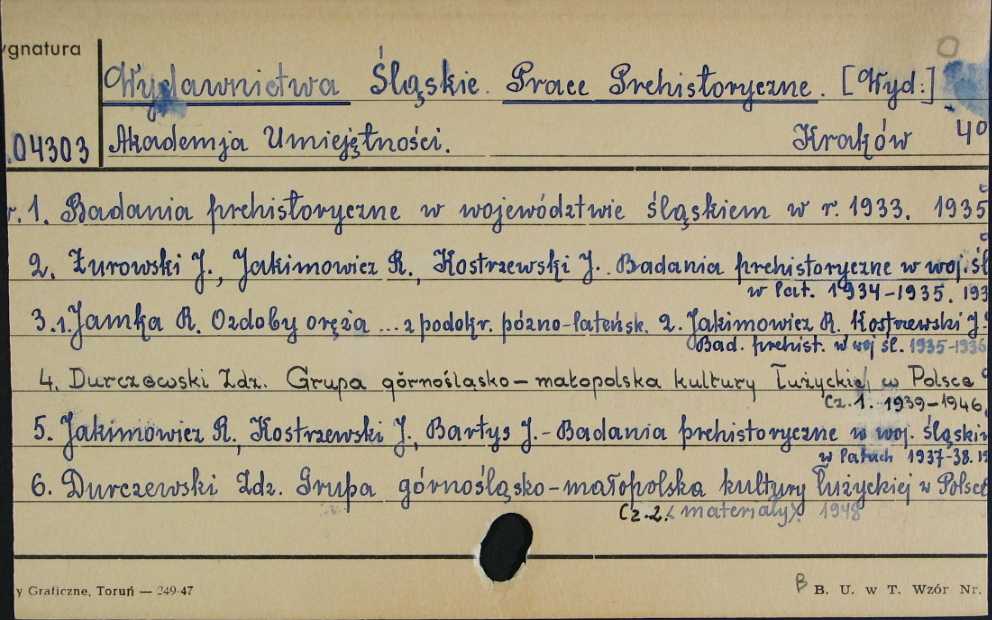 ygnatura
Wydawnictwa Śląskie. Prace Prehistoryczne. [Wyd:]
04303 Akademja Umiejętności. Kraków 4º
r. 1. Badania prehistoryczne w województwie śląskiem w r. 1933. 1935
2. Żurowski J., Jakimowicz R., Kostrzewski J.. Badania prehistoryczne w woj. śl
w lat. 1934-1935. 193
3.1. Jamka R. Ozdoby oręża ... z podokr. późno-lateńsk. 2. Jakimowicz R. Kostrzewski J.
Bad. prehist. w woj śl. 1935-1936
4. Durczewski Zdz. Grupa górnośląsko-małopolska kultury łużyckiej w Polsce
Cz. 1. 1939-1946.
5. Jakimowicz R., Kostrzewski J., Bartys J. - Badania prehistoryczne w woj. śląskim
w latach 1937-38. 19
6. Durczewski Zdz. Grupa górnośląsko-małopolska kultury łużyckiej w Polsce
Cz. 2. (materiały). 1948
y Graficzne, Toruń — 249-47 B B. U. w T. Wzór Nr.